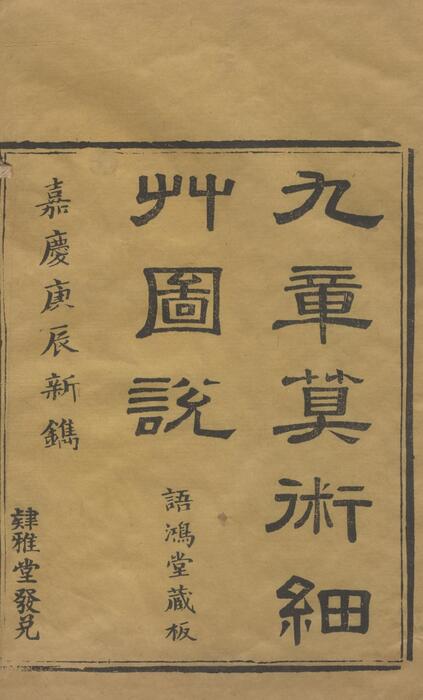 九章算術細
艸圖說
語鴻堂藏板
嘉慶庚辰新鐫
肄雅堂發兌